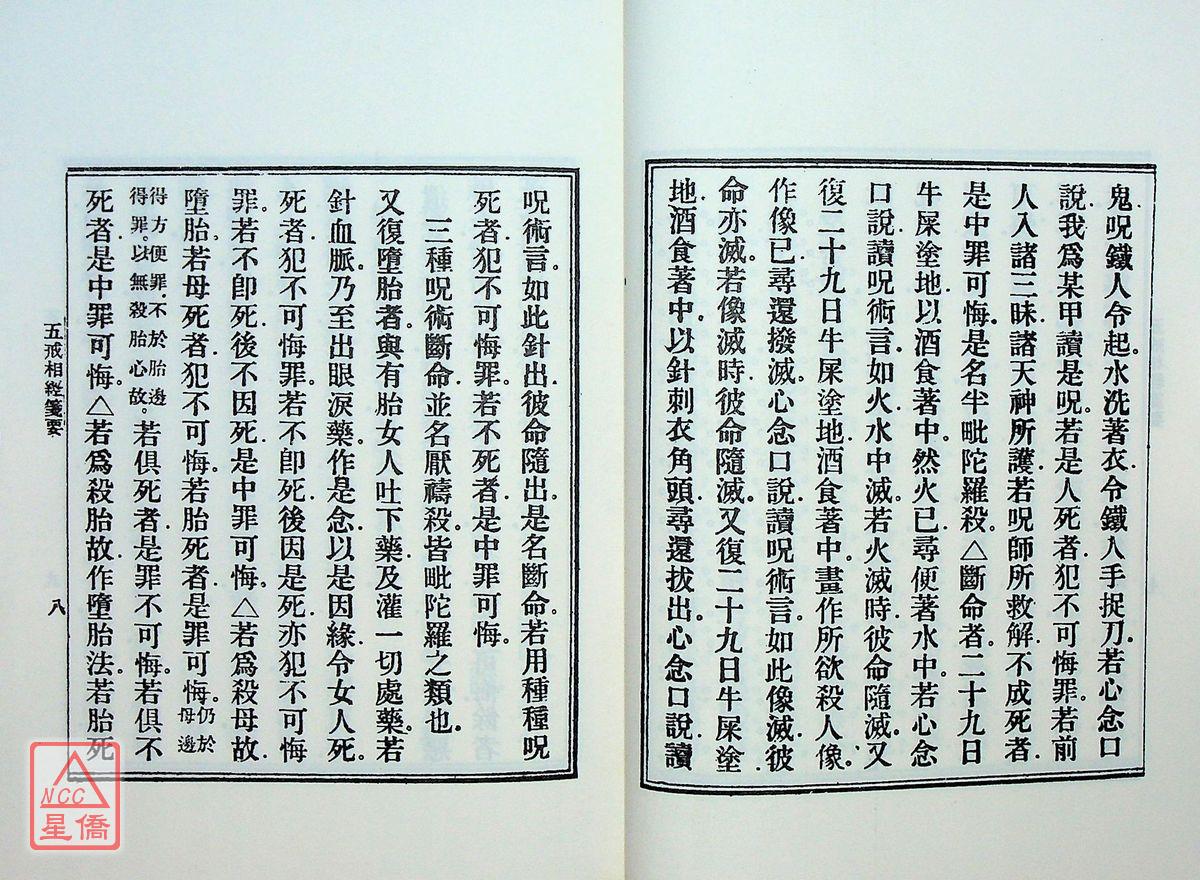 鬼。呪鐵人令起。水洗著衣。令鐵人手捉刀。若心念口
說。我爲某甲讀是呪。若是人死者。犯不可悔罪。若前
人入諸三昧。諸天神所護。若呪師所救解。不成死者。
是中罪可悔。是名半毗陀羅殺。△斷命者。二十九日
牛屎塗地。以酒食著中。然火已。尋便著水中。若心念
口說讀呪術言。如火水中滅。若火滅時。彼命隨滅。又
復二十九日。牛屎塗地。酒食著中。畫作所欲殺人像。
作像已。尋還撥滅。心念口說讀呪術言。如此像滅。彼
命亦滅。若像滅時。彼命隨滅。又復二十九日。牛屎塗
地。酒食著中。以針刺衣角頭。尋還拔出。心念口說讀
呪術言。如此針出。彼命隨出。是名斷命。若用種種呪
死者。犯不可悔罪。若不死者。是中罪可悔。
三種呪術斷命。並名厭禱殺。皆毗陀羅之類也。
又復墮胎者。與有胎女人吐下藥。及灌一切處藥。若
針血脈。乃至出眼淚藥。作是念。以是因緣。令女人死。
死者。犯不可悔罪。若不卽死。後因是死。亦犯不可悔
罪。若不卽死。後不因死。是中罪可悔。△若爲殺母故
墮胎。若母死者。犯不可悔。若胎死者。是罪可悔。仍於母邊
得方便罪。不於胎邊得罪。以無殺胎心故。若俱死者。是罪不可悔。若俱不
死者。是中罪可悔。△若爲殺胎故。作墮胎法。若胎死
五戒相經箋要
八
NCC
星僑